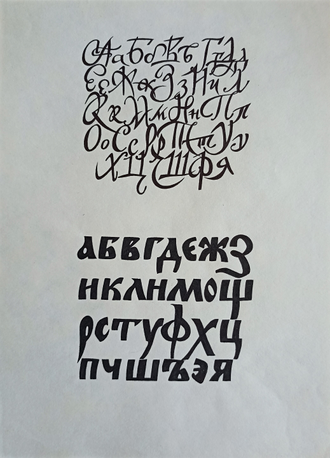 АаБбВвЪъГгДд
ЕеЖжЗзИиЛл
КкМмНнПп
ОоСсРрТтУу
ХЦЧШфя
абвгдежз
иклнмощ
рстуфхц
пчшъэя